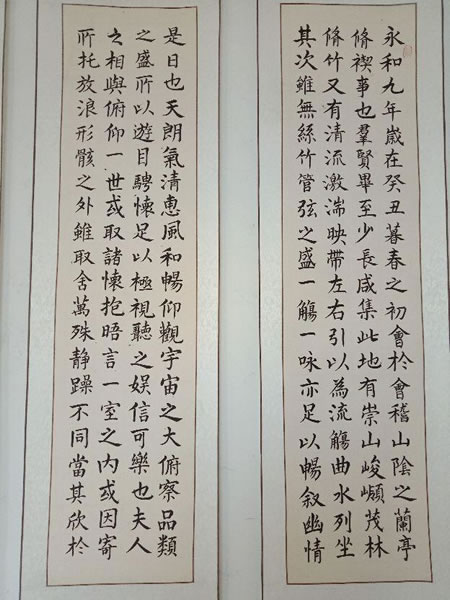 永和九年歲在癸丑暮春之初會於會稽山陰之蘭亭
脩禊事也羣賢畢至少長咸集此地有崇山峻嶺茂林
脩竹又有清流激湍映帶左右引以為流觴曲水列坐
其次雖無絲竹管弦之盛一觴一咏亦足以暢叙幽情
是日也天朗氣清惠風和暢仰觀宇宙之大俯察品類
之盛所以遊目騁懷足以極視聽之娱信可樂也夫人
之相與俯仰一世或取諸懷抱晤言一室之内或因寄
所托放浪形骸之外雖取舍萬殊静躁不同當其欣於